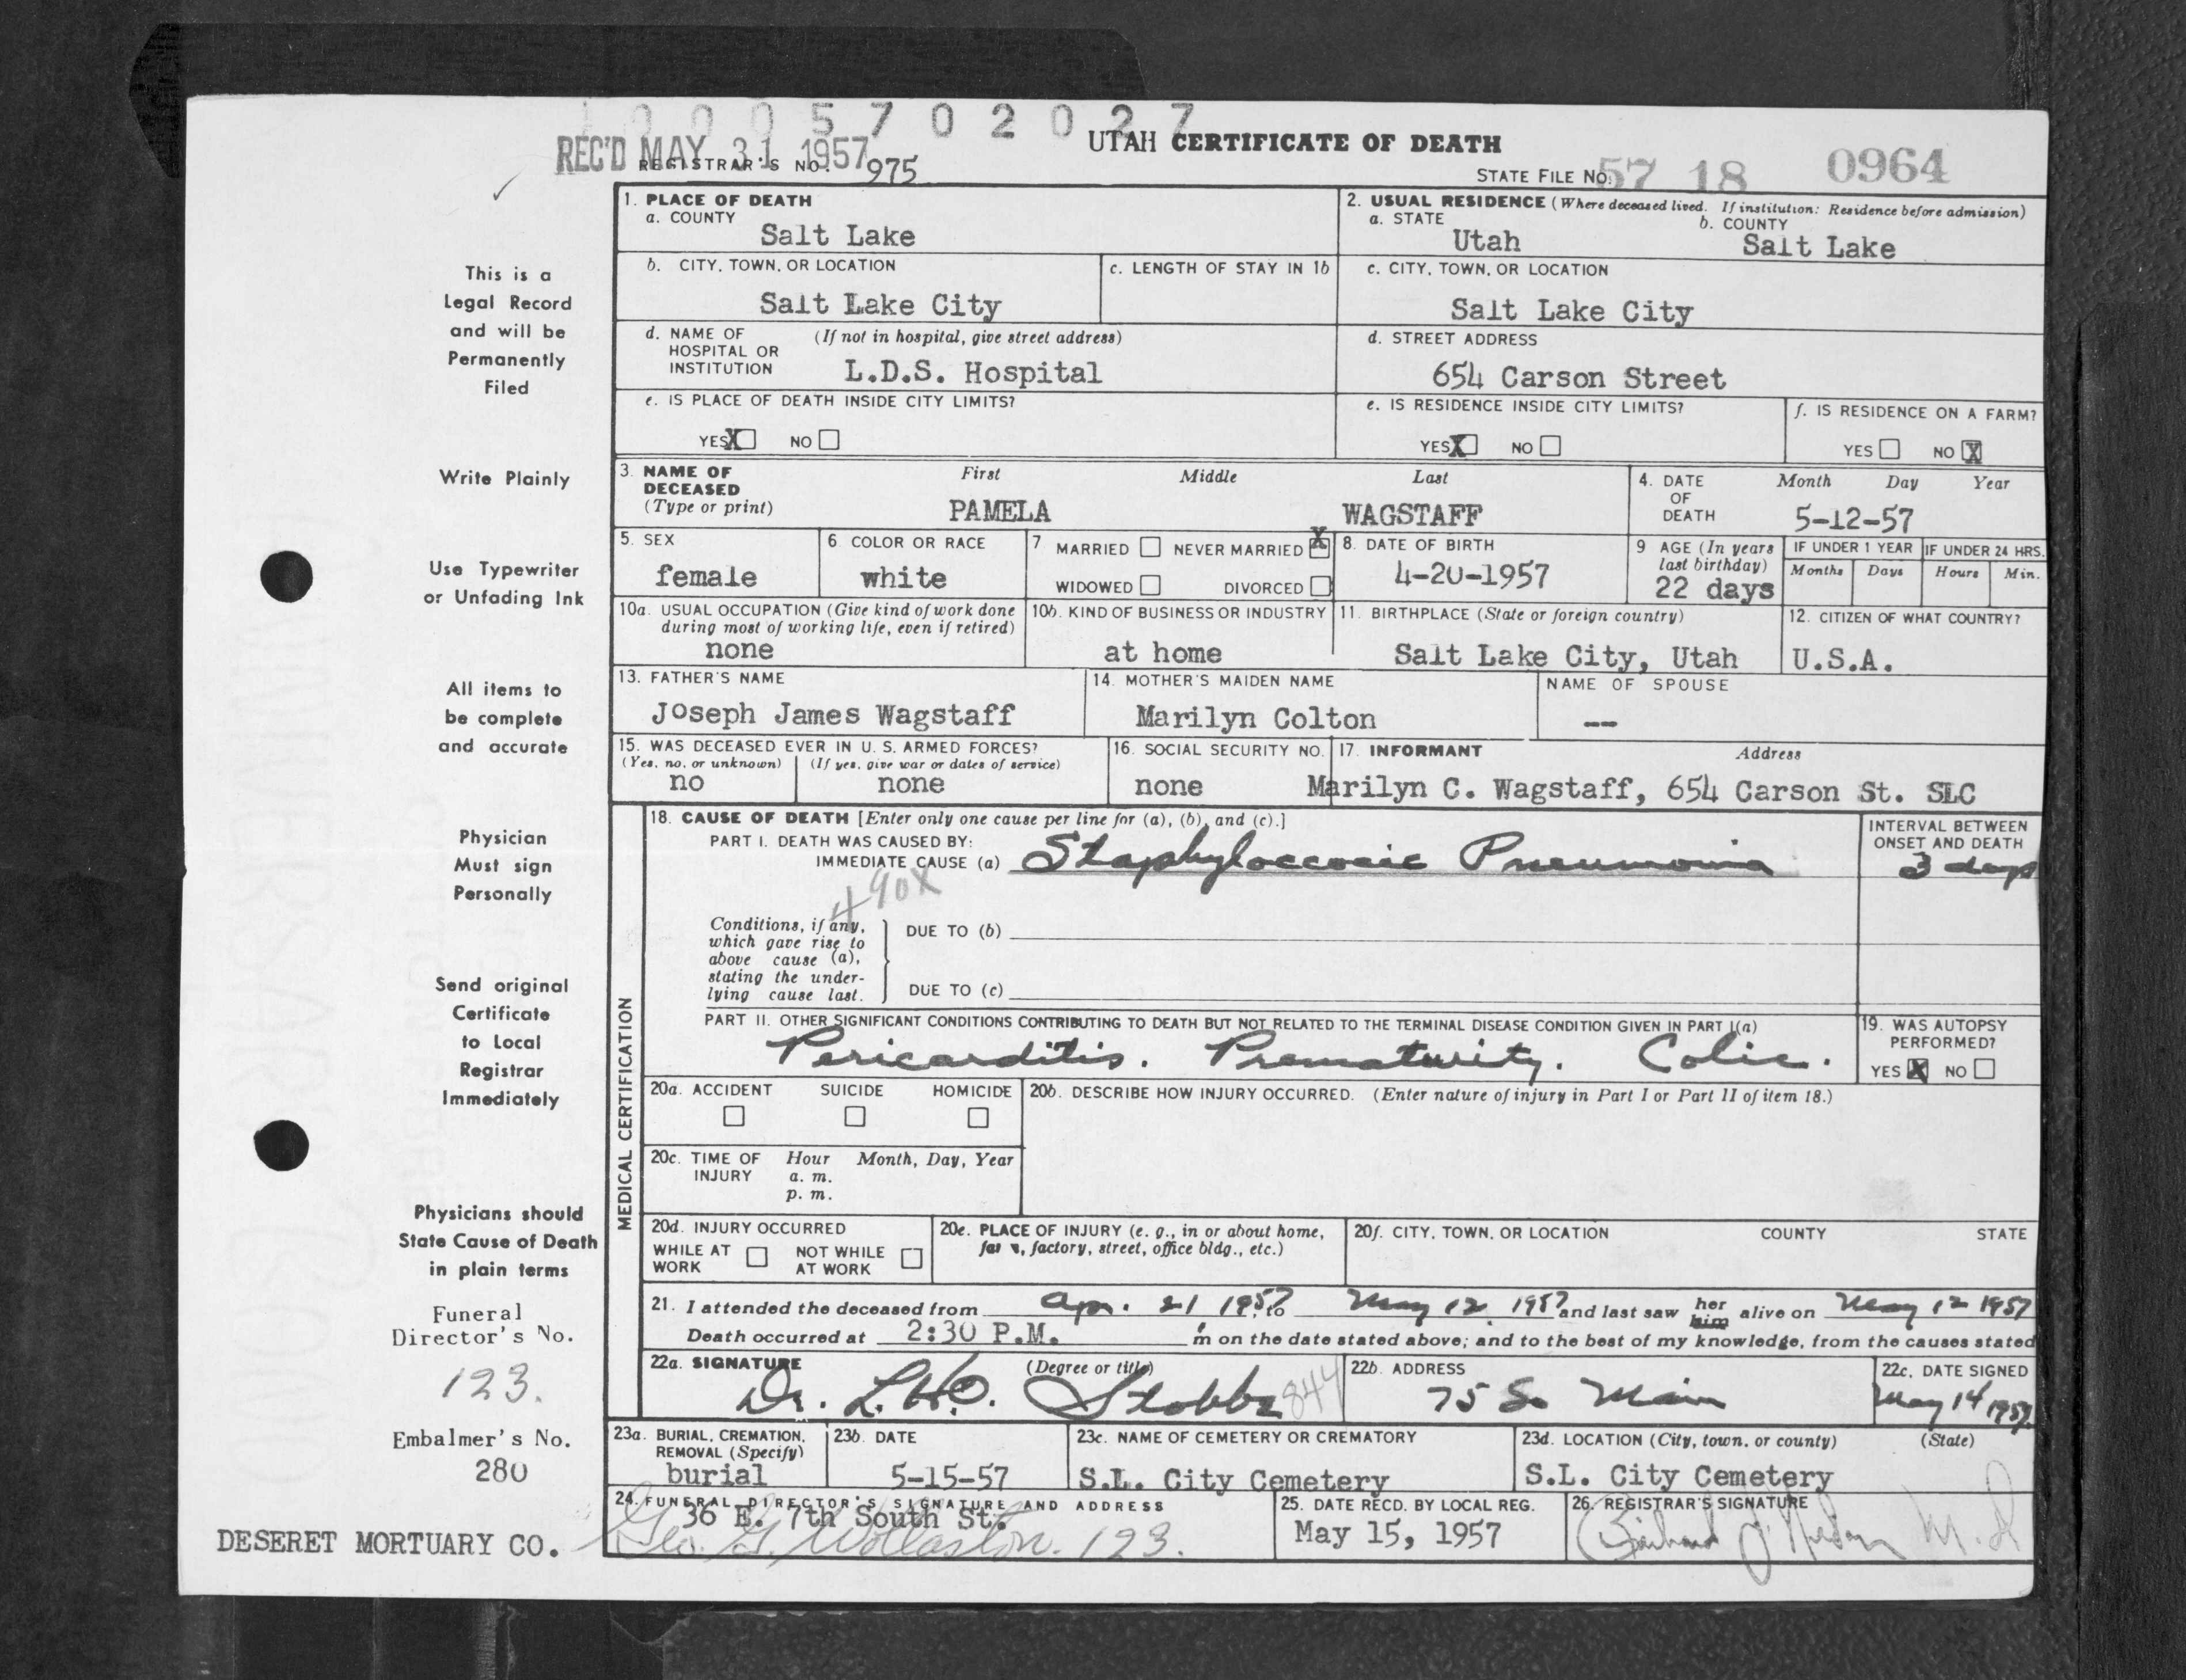 1 0 0 0 5 7 0 2 0 2 7
REC'D MAY 31 1957
REGISTRAR'S NO. 975
UTAH CERTIFICATE OF DEATH
STATE FILE NO. 57 18 0964
1. PLACE OF DEATH
a. COUNTY
Salt Lake
2. USUAL RESIDENCE (Where deceased lived. If institution: Residence before admission)
a. STATE b. COUNTY
Utah Salt Lake
b. CITY, TOWN, OR LOCATION
Salt Lake City
c. LENGTH OF STAY IN 1b
c. CITY, TOWN, OR LOCATION
Salt Lake City
d. NAME OF (If not in hospital, give street address)
HOSPITAL OR
INSTITUTION L.D.S. Hospital
d. STREET ADDRESS
654 Carson Street
e. IS PLACE OF DEATH INSIDE CITY LIMITS?
YES X NO
e. IS RESIDENCE INSIDE CITY LIMITS?
YES X NO
f. IS RESIDENCE ON A FARM?
YES NO X
3. NAME OF First Middle Last
DECEASED
(Type or print) PAMELA WAGSTAFF
4. DATE Month Day Year
OF
DEATH 5-12-57
5. SEX
female
6. COLOR OR RACE
white
7 MARRIED NEVER MARRIED X
WIDOWED DIVORCED
8. DATE OF BIRTH
4-20-1957
9 AGE (In years
last birthday)
22 days
IF UNDER 1 YEAR
Months Days
IF UNDER 24 HRS.
Hours Min.
10a. USUAL OCCUPATION (Give kind of work done
during most of working life, even if retired)
none
10b. KIND OF BUSINESS OR INDUSTRY
at home
11. BIRTHPLACE (State or foreign country)
Salt Lake City, Utah
12. CITIZEN OF WHAT COUNTRY?
U.S.A.
13. FATHER'S NAME
Joseph James Wagstaff
14. MOTHER'S MAIDEN NAME
Marilyn Colton
NAME OF SPOUSE
--
15. WAS DECEASED EVER IN U. S. ARMED FORCES?
(Yes, no, or unknown) (If yes, give war or dates of service)
no none
16. SOCIAL SECURITY NO.
none
17. INFORMANT Address
Marilyn C. Wagstaff, 654 Carson St. SLC
MEDICAL CERTIFICATION
18. CAUSE OF DEATH [Enter only one cause per line for (a), (b), and (c).]
PART I. DEATH WAS CAUSED BY:
IMMEDIATE CAUSE (a) Staphylococcic Pneumonia
INTERVAL BETWEEN
ONSET AND DEATH
3 days
490X
Conditions, if any,
which gave rise to
above cause (a),
stating the under-
lying cause last.
DUE TO (b)
DUE TO (c)
PART II. OTHER SIGNIFICANT CONDITIONS CONTRIBUTING TO DEATH BUT NOT RELATED TO THE TERMINAL DISEASE CONDITION GIVEN IN PART I(a)
Pericarditis. Prematurity. Colic.
19. WAS AUTOPSY
PERFORMED?
YES X NO
20a. ACCIDENT SUICIDE HOMICIDE
20b. DESCRIBE HOW INJURY OCCURRED. (Enter nature of injury in Part I or Part II of item 18.)
20c. TIME OF Hour Month, Day, Year
INJURY a. m.
p. m.
20d. INJURY OCCURRED
WHILE AT NOT WHILE
WORK AT WORK
20e. PLACE OF INJURY (e. g., in or about home,
farm, factory, street, office bldg., etc.)
20f. CITY, TOWN, OR LOCATION COUNTY STATE
21. I attended the deceased from Apr. 21 1957 to May 12, 1957 and last saw her him alive on May 12 1957
Death occurred at 2:30 P.M. m on the date stated above; and to the best of my knowledge, from the causes stated
22a. SIGNATURE (Degree or title)
Dr. L.H.O. Stobbe 844
22b. ADDRESS
75 So Main
22c. DATE SIGNED
May 14 1957
23a. BURIAL, CREMATION,
REMOVAL (Specify)
burial
23b. DATE
5-15-57
23c. NAME OF CEMETERY OR CREMATORY
S.L. City Cemetery
23d. LOCATION (City, town, or county) (State)
S.L. City Cemetery
24. FUNERAL DIRECTOR'S SIGNATURE AND ADDRESS
36 E. 7th South St.
Geo. G. Wollaston. 123.
25. DATE RECD. BY LOCAL REG.
May 15, 1957
26. REGISTRAR'S SIGNATURE
M.D.
This is a
Legal Record
and will be
Permanently
Filed
Write Plainly
Use Typewriter
or Unfading Ink
All items to
be complete
and accurate
Physician
Must sign
Personally
Send original
Certificate
to Local
Registrar
Immediately
Physicians should
State Cause of Death
in plain terms
Funeral
Director's No.
123.
Embalmer's No.
280
DESERET MORTUARY CO.